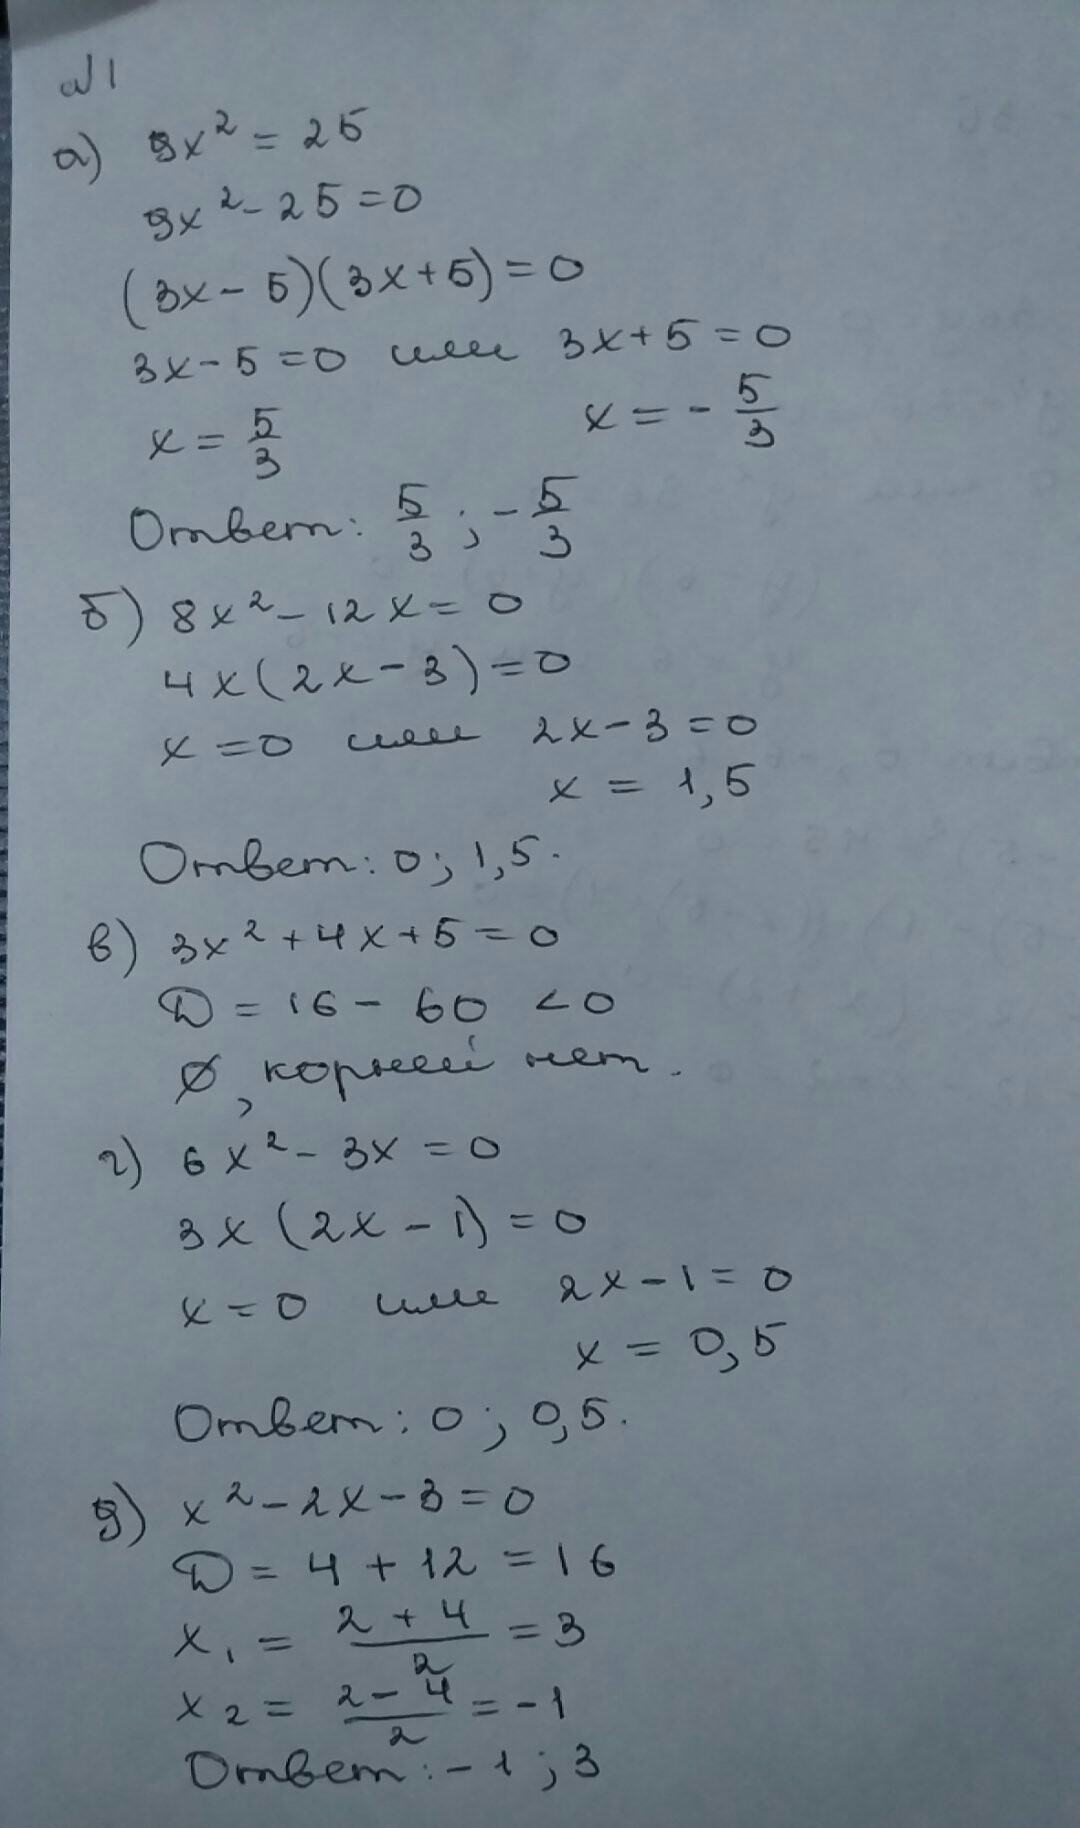 №1
а) 9x² = 25
9x² - 25 = 0
(3x - 5)(3x + 5) = 0
3x - 5 = 0 или 3x + 5 = 0
x = 5/3 x = - 5/3
Ответ: 5/3 ; - 5/3
б) 8x² - 12x = 0
4x(2x - 3) = 0
x = 0 или 2x - 3 = 0
x = 1,5
Ответ: 0; 1,5.
в) 3x² + 4x + 5 = 0
D = 16 - 60 < 0
∅, корней нет.
г) 6x² - 3x = 0
3x (2x - 1) = 0
x = 0 или 2x - 1 = 0
x = 0,5
Ответ: 0 ; 0,5.
д) x² - 2x - 3 = 0
D = 4 + 12 = 16
x₁ = (2 + 4)/2 = 3
x₂ = (2 - 4)/2 = -1
Ответ: -1 ; 3